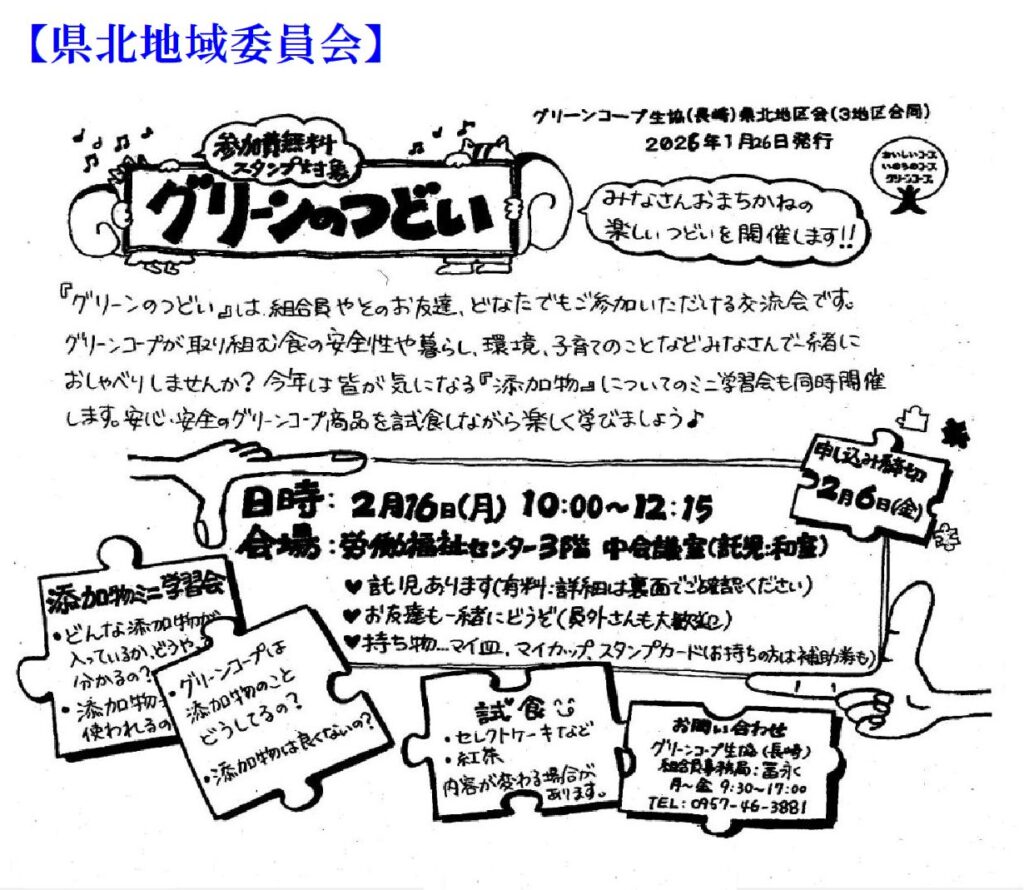 【県北地域委員会】
グリーンコープ生協(長崎)県北地区会(3地区合同)
2026年1月26日発行
参加費無料
スタンプ対象
グリーンのつどい
みなさんおまちかねの
楽しいつどいを開催します!!
おいしいコープ
いのちのコープ
グリーンコープ
『グリーンのつどい』は、組合員やそのお友達、どなたでもご参加いただける交流会です。
グリーンコープが取り組む食の安全性や暮らし、環境、子育てのことなどみなさんで一緒に
おしゃべりしませんか?今年は皆が気になる『添加物』についてのミニ学習会も同時開催
します。安心・安全のグリーンコープ商品を試食しながら楽しく学びましょう♪
申し込み締切
2月6日(金)
日時:2月16日(月) 10:00~12:15
会場:労働福祉センター3階 中会議室(託児:和室)
♥託児あります(有料:詳細は裏面でご確認ください)
♥お友達も一緒にどうぞ(員外さんも大歓迎)
♥持ち物…マイ皿、マイカップ、スタンプカード(お持ちの方は補助券も)
添加物ミニ学習会
・どんな添加物が
入っているか、どうや
分かるの?
・添加物
使われるの
・グリーンコープは
添加物のこと
どうしてるの?
・添加物は良くないの?
試食
・セレクトケーキなど
・紅茶
内容が変わる場合が
あります。
お問い合わせ
グリーンコープ生協(長崎)
組合員事務局:冨永
月~金 9:30~17:00
TEL:0957-46-3881